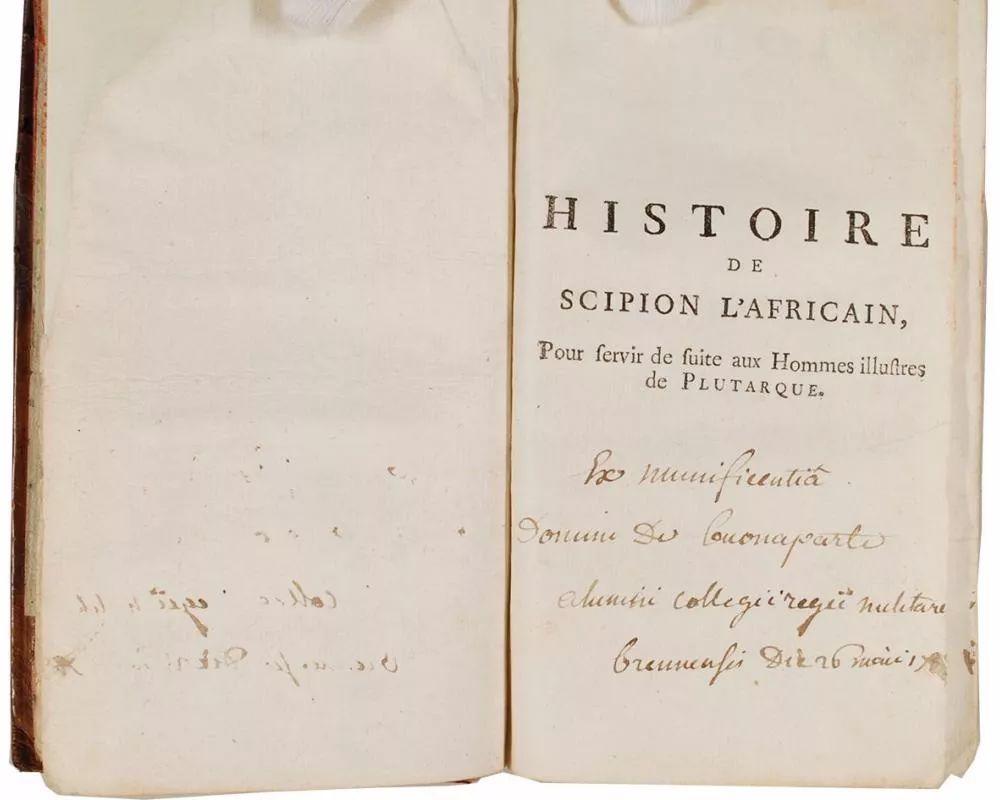 HISTOIRE
DE
SCIPION L'AFRICAIN,
Pour ſervir de ſuite aux Hommes illuſtres
de PLUTARQUE.
Ex munificentiâ
Domini De buonaparte
alumini collegii regii militare
brennensis Die 26 maii